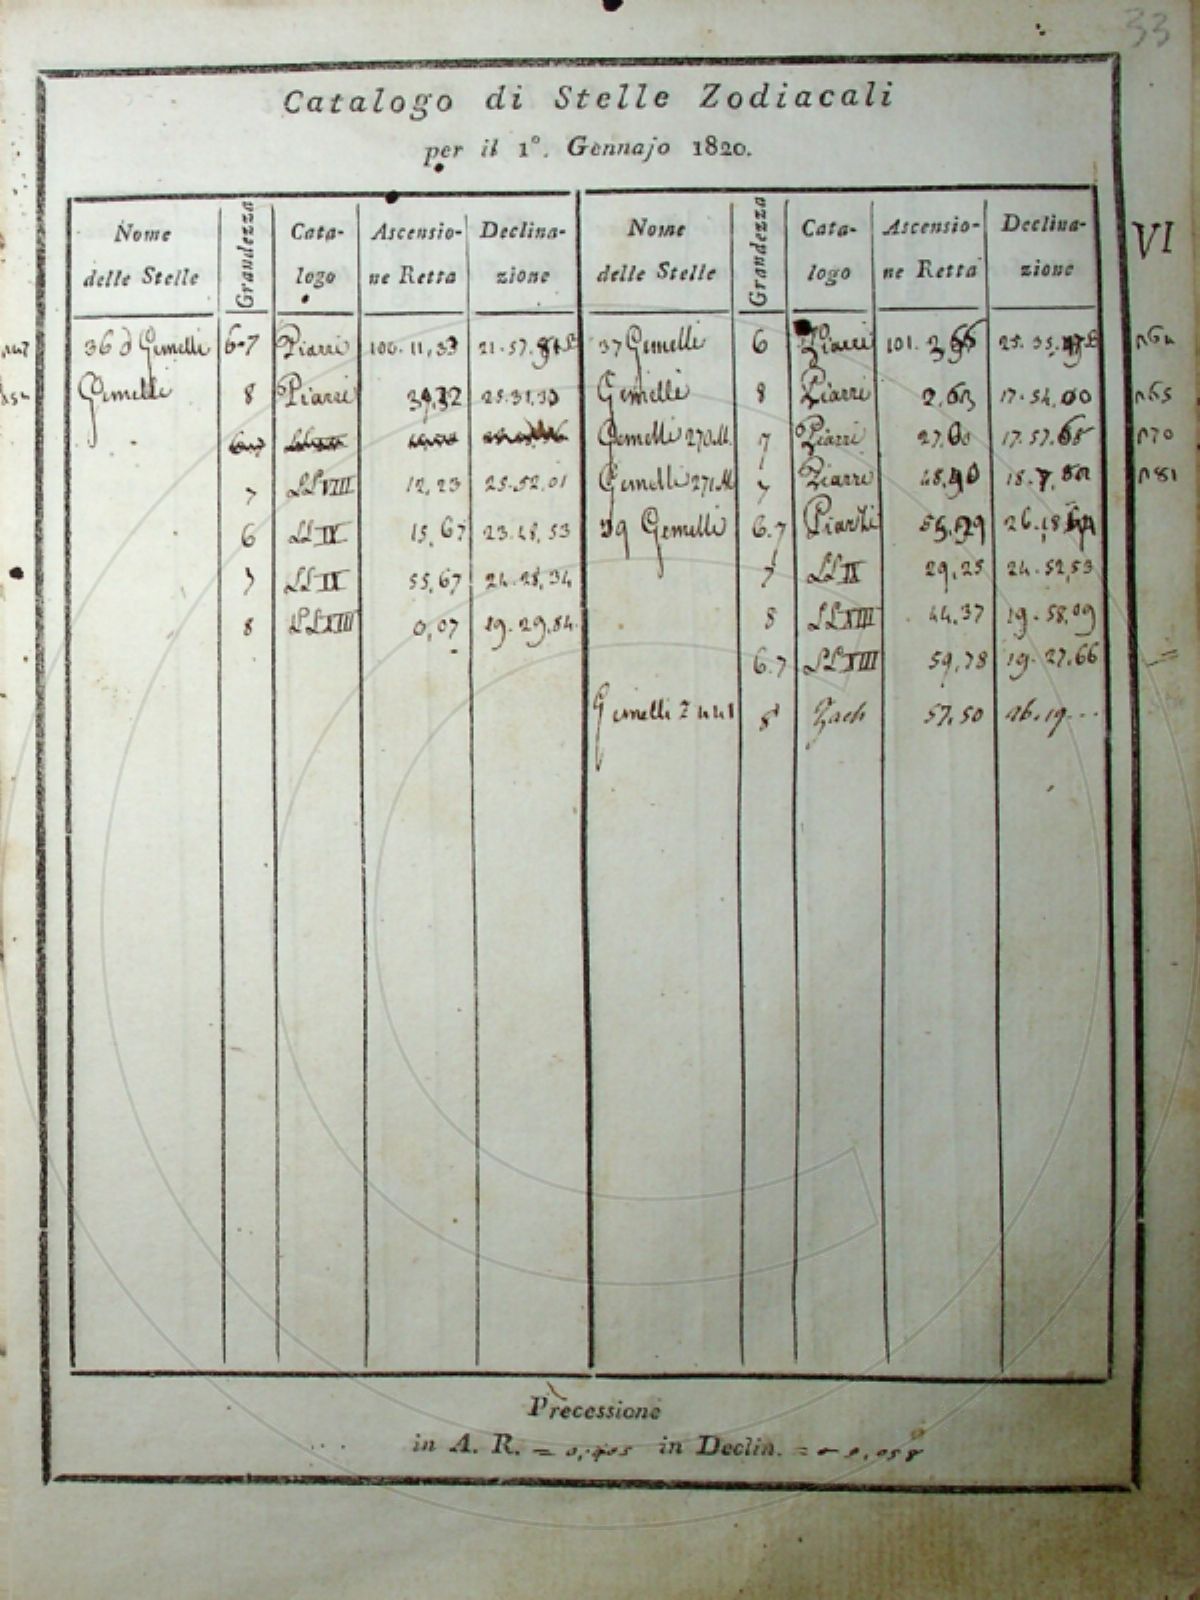 33
Catalogo di Stelle Zodiacali
per il 1°. Gennajo 1820.
Nome delle Stelle Grandezza Cata-logo Ascensio-ne Retta Declina-zione Nome delle Stelle Grandezza Cata-logo Ascensio-ne Retta Declina-zione
VI
36 d Gemelli 6-7 Piazzi 100. 11, 21.57. 37 Gemelli 6 Piazzi 101. 25.35.
Gemelli 8 Piazzi 25.31,33 Gemelli 8 Piazzi 2,63 17.54,00
Gemelli 270 M. 7 Piazzi 27, 17.57.68
7 LL VIII 12,23 25.52,01 Gemelli 271 M 7 Piazzi 48,90 18.7,
6 LL IX 15,67 23.48,53 39 Gemelli 6.7 Piazzi 26.18
7 LL IX 55,67 24.28,34 7 LL IX 29,25 24.52,53
8 LL XIII 0,07 19.29,84 8 LL XIII 44,37 19.58,09
6.7 LL XIII 59,78 19.27,66
Gemelli Z 8 Zach 57,50 26.19...
Precessione
in A. R. = 0, in Declin. = - 0,058